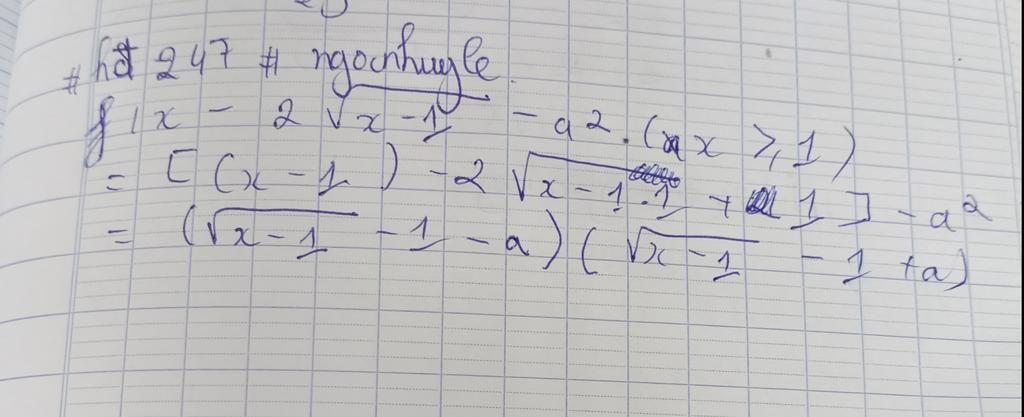 #hđ 247 # ngocnhuyle
f, x - 2√x-1 - a². (x ≥ 1)
= [(x-1) - 2√x-1.1 + 1] - a²
= (√x-1 - 1 - a)(√x-1 - 1 + a)